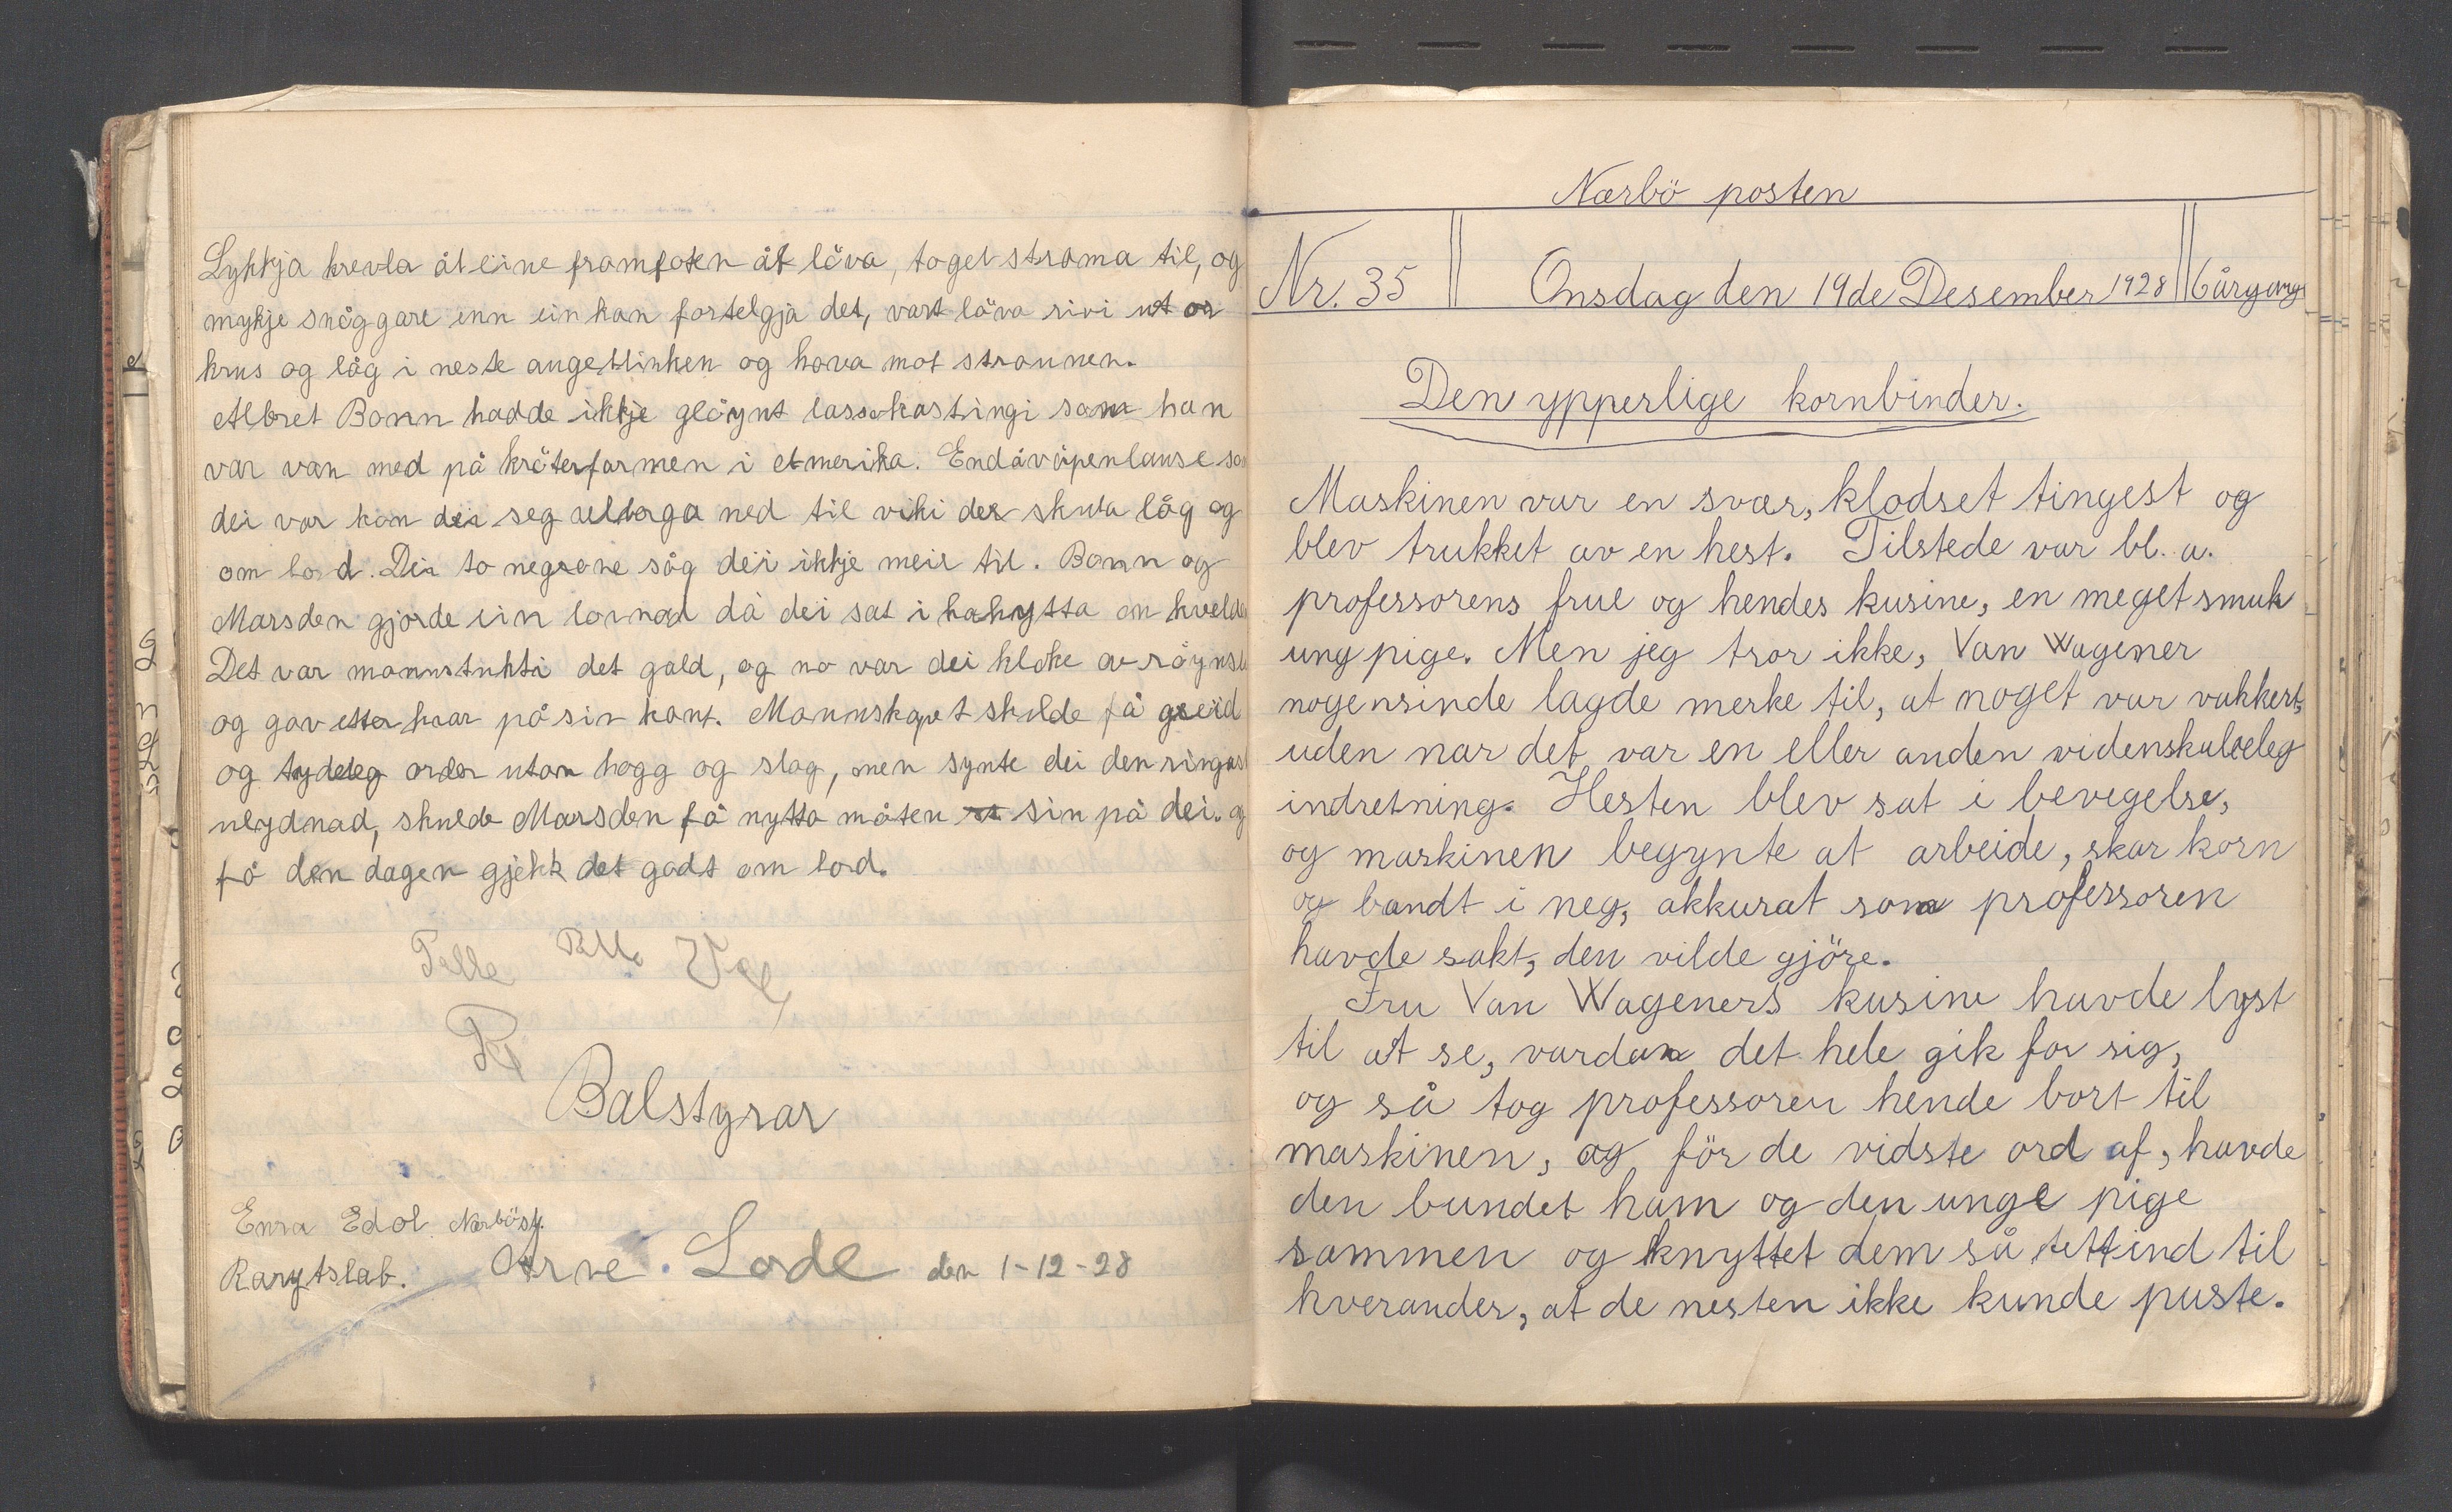 Lykkja krevla åt eine framfoten åt löva, toget strama til, og
mykje snöggare enn ein kan fortelgja det, vart löva rivi ut or
krus og låg i neste augeblinken og kava mot straumen.
Albret Bonn hadde ikkje glöymt lassokastingi som han
var van med på kröterfarmen i Amerika. Endå våpenlause so
dei var kom dei seg velberga ned til viki der skuta låg og
om bord. Dei to negrane såg dei ikkje meir til. Bonn og
Marsden gjorde ein lovnad då dei sat i kahytta om kvelde
Det var mannstukti det gald, og no var dei kloke av röynsl
og gav etter kvar på sin kant. Mannskapet skulde få greid
og tydeleg order utan hogg og slag, men synte dei den ringast
ulydnad, skulde Marsden få nytta måten sin på dei. og
få den dagen gjekk det godt om bord.
Pelle
Balstyrar
Enra Edol Nærbösg.
Rarytslab. Arne. Lode den 1-12-28
Nærbö posten
Nr. 35 Onsdag den 19de Desember 1928 6årgang
Den ypperlige kornbinder.
Maskinen var en svær, klodset tingest og
blev trukket av en hest. Tilstede var bl. a.
professorens frue og hendes kusine, en meget smuk
ung pige. Men jeg tror ikke, Van Wagener
nogensinde lagde merke til, at noget var vakkert,
uden nar det var en eller anden videnskabeleg
indretning. Hesten blev sat i bevegelse,
og maskinen begynte at arbeide, skar korn
og bandt i neg, akkurat som professoren
havde sakt, den vilde gjöre.
Fru Van Wageners kusine havde lyst
til at se, vardan det hele gik for sig,
og så tog professoren hende bort til
maskinen, og för de vidste ord af, havde
den bundet ham og den unge pige
sammen og knyttet dem så tett ind til
hverander, at de nesten ikke kunde puste.